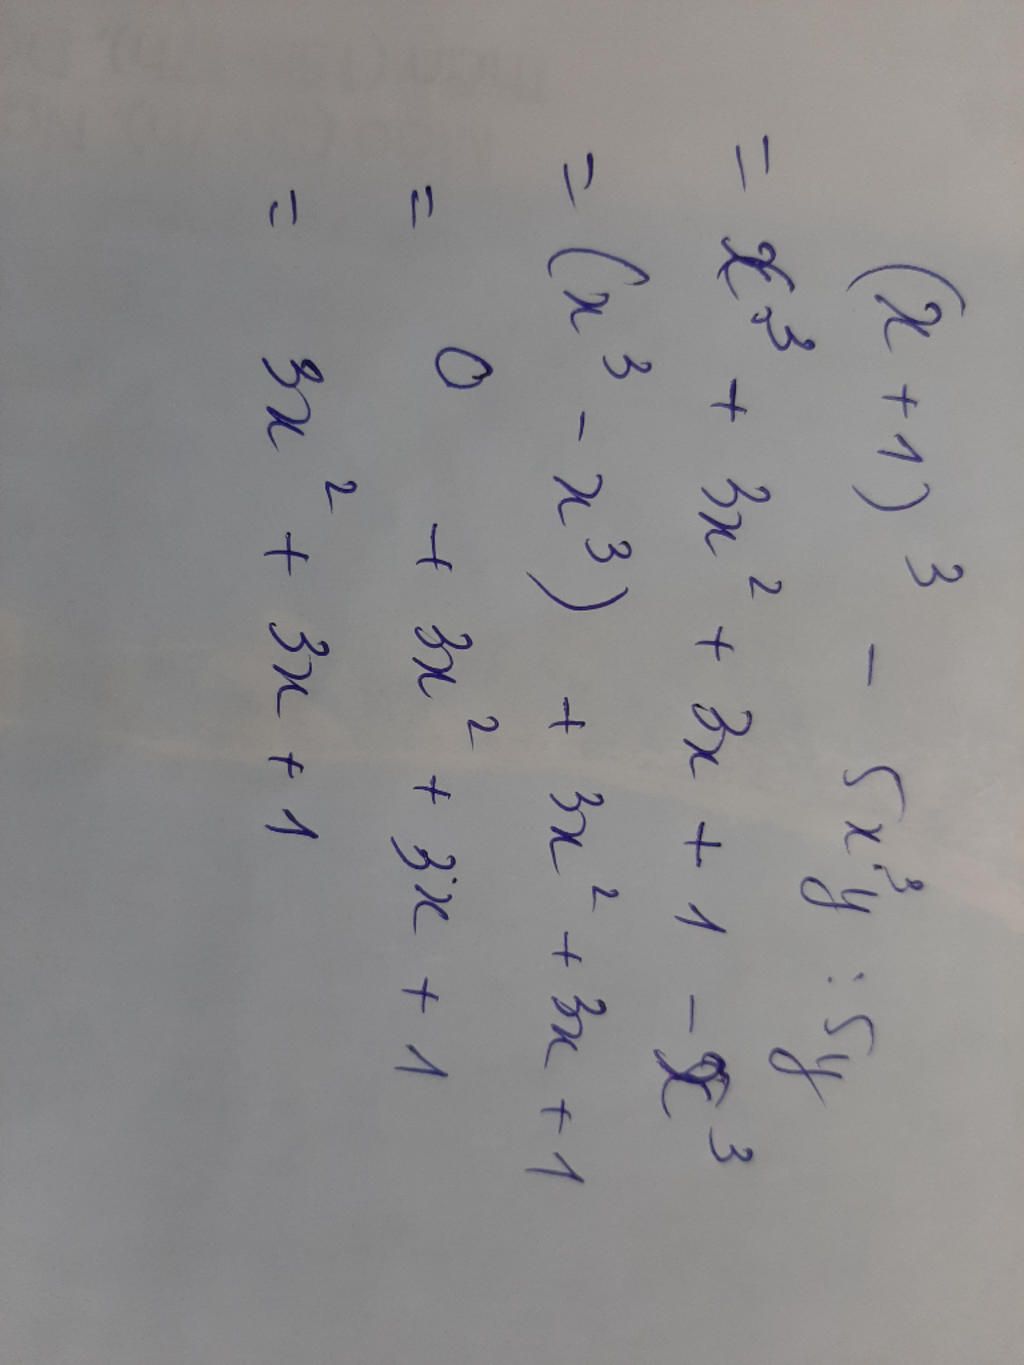 (x + 1)³ - 5x³y : 5y
= x³ + 3x² + 3x + 1 - x³
= (x³ - x³) + 3x² + 3x + 1
= 0 + 3x² + 3x + 1
= 3x² + 3x + 1